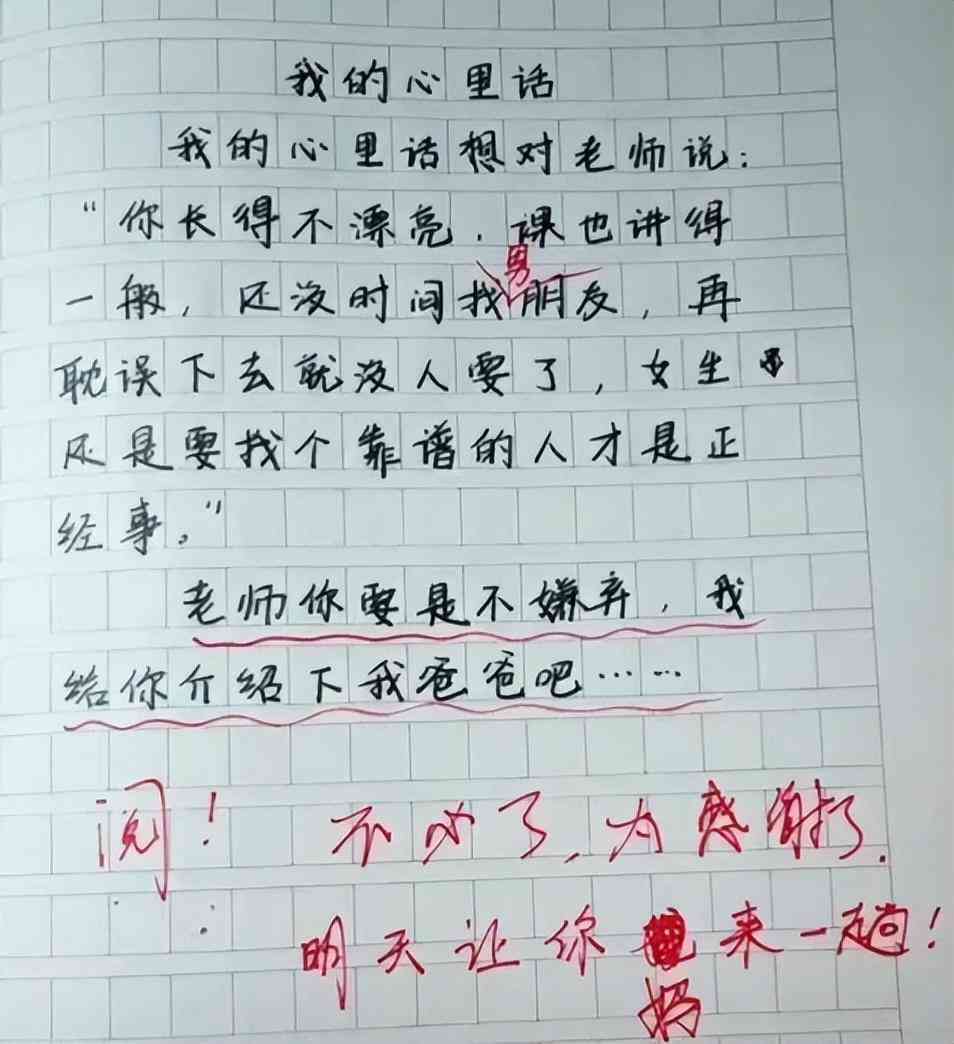 我的心里话
我的心里话想对老师说：
“你长得不漂亮，课也讲得
男
一般，还没时间找朋友，再
耽误下去就没人要了，女生
还是要找个靠谱的人才是正
经事。”
老师你要是不嫌弃，我
给你介绍下我爸爸吧……
阅！ 不必了，感谢了.
明天让你来一趟！
妈